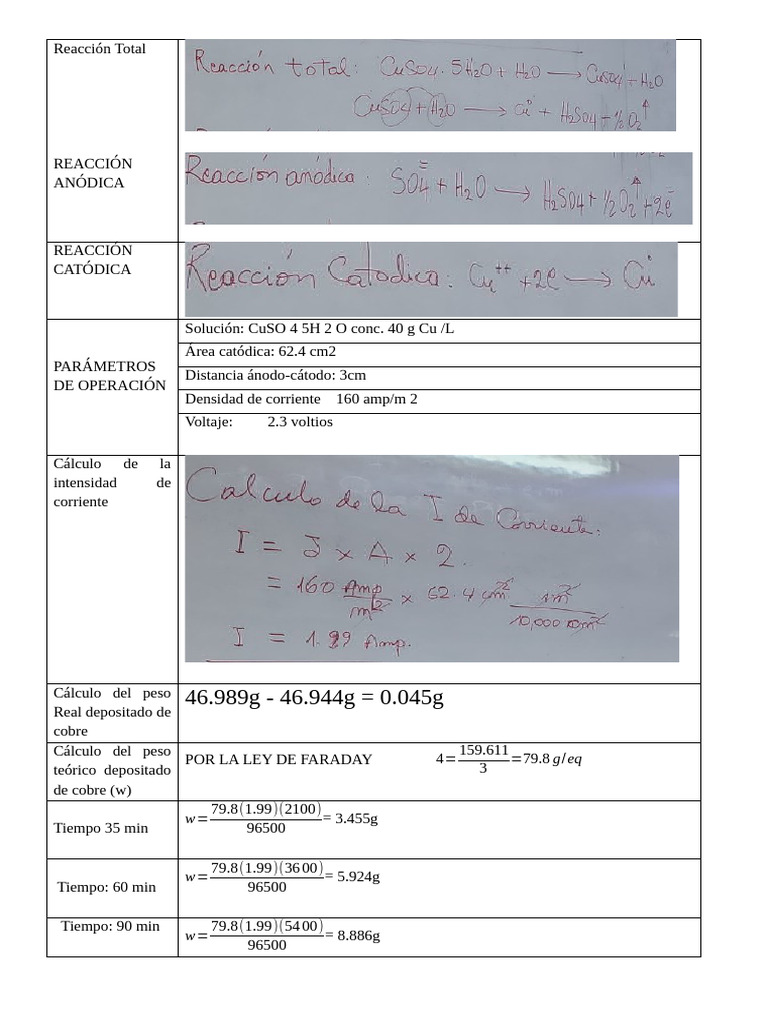 Reacción Total
Reacción total: CuSO4 . 5H2O + H2O → CuSO4 + H2O
CuSO4 + H2O → Cu° + H2SO4 + 1/2 O2↑
REACCIÓN
ANÓDICA
Reacción anódica : SO4= + H2O → H2SO4 + 1/2 O2↑ + 2e-
REACCIÓN
CATÓDICA
Reacción Catodica : Cu++ + 2e → Cu°
PARÁMETROS
DE OPERACIÓN
Solución: CuSO 4 5H 2 O conc. 40 g Cu /L
Área catódica: 62.4 cm2
Distancia ánodo-cátodo: 3cm
Densidad de corriente 160 amp/m 2
Voltaje: 2.3 voltios
Cálculo de la
intensidad de
corriente
Calculo de la I de Corriente:
I = J x A x 2.
= 160 Amp/m2 x 62.4 cm2 1m2/10,000 cm2
I = 1.99 Amp.
Cálculo del peso
Real depositado de
cobre
46.989g - 46.944g = 0.045g
Cálculo del peso
teórico depositado
de cobre (w)
POR LA LEY DE FARADAY 4=159.611/3=79.8 g/eq
Tiempo 35 min
w=79.8(1.99)(2100)/96500= 3.455g
Tiempo: 60 min
w=79.8(1.99)(3600)/96500= 5.924g
Tiempo: 90 min
w=79.8(1.99)(5400)/96500= 8.886g